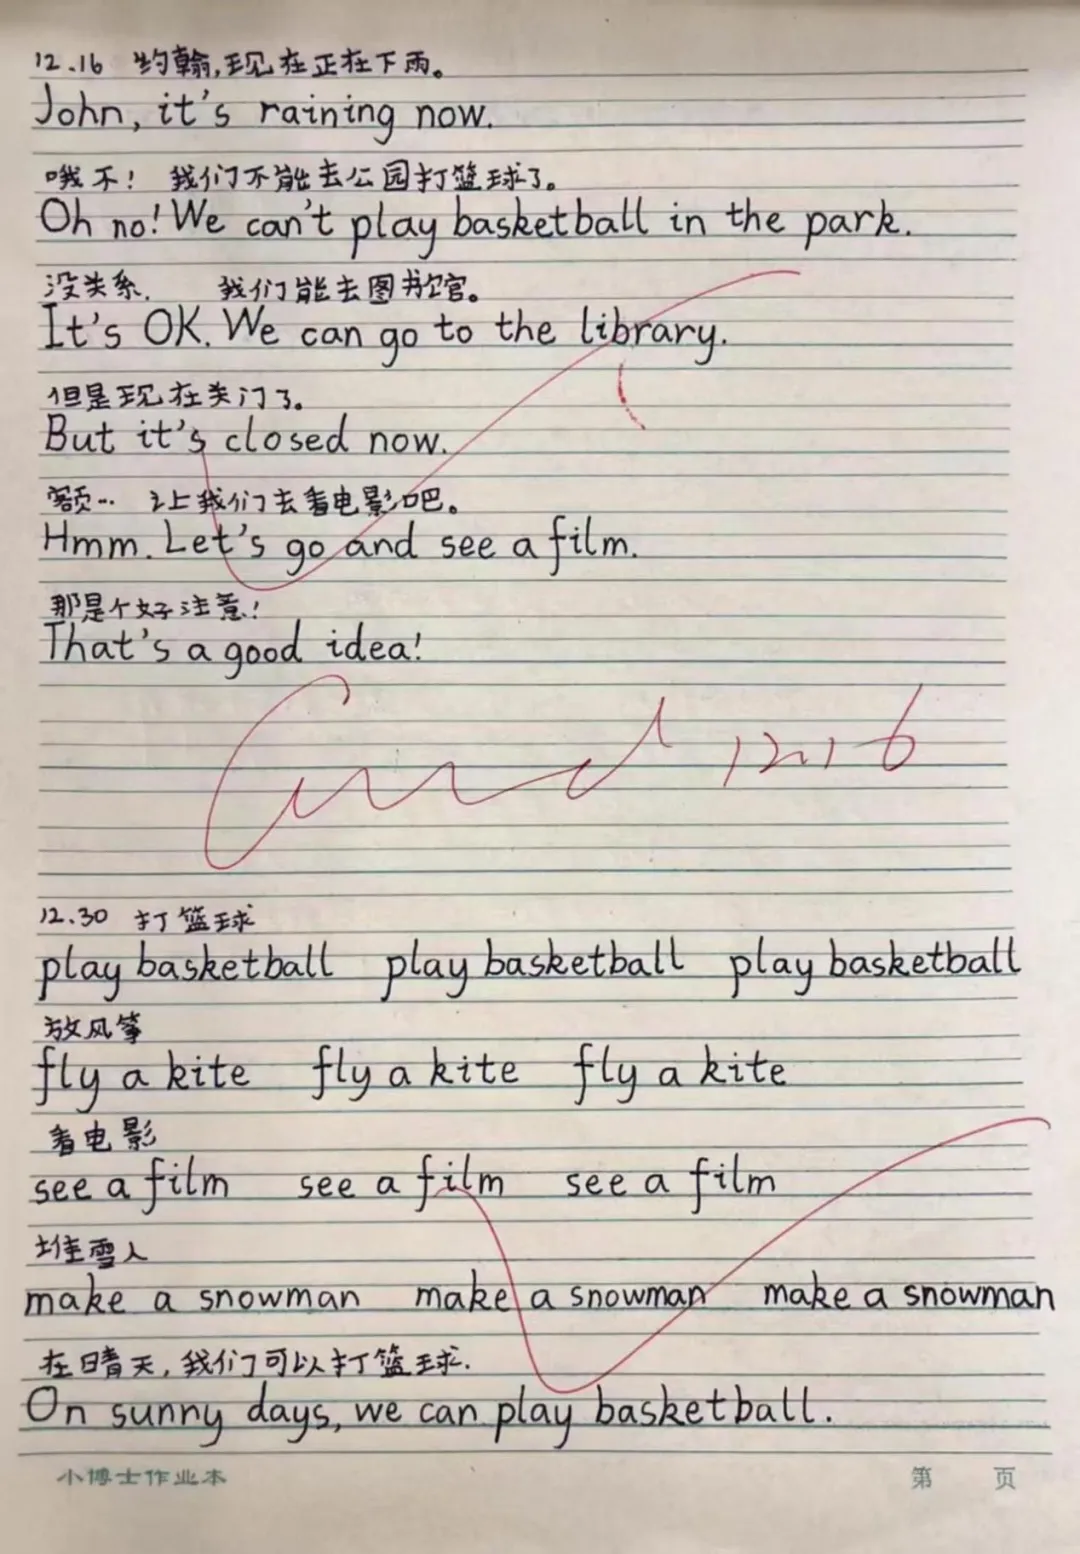 12.16 约翰,现在正在下雨。
John, it's raining now.
哦不! 我们不能去公园打篮球了。
Oh no! We can't play basketball in the park.
没关系. 我们能去图书馆。
It's OK. We can go to the library.
但是现在关门了。
But it's closed now.
额… 让我们去看电影吧。
Hmm. Let's go and see a film.
那是个好注意!
That's a good idea!
Good 12.16
12.30 打篮球
play basketball play basketball play basketball
放风筝
fly a kite fly a kite fly a kite
看电影
see a film see a film see a film
堆雪人
make a snowman make a snowman make a snowman
在晴天,我们可以打篮球.
On sunny days, we can play basketball.
小博士作业本 第 页